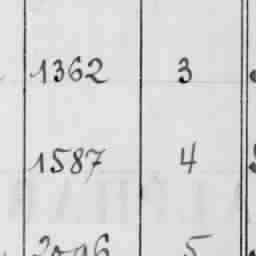 1362 3
1587 4
5